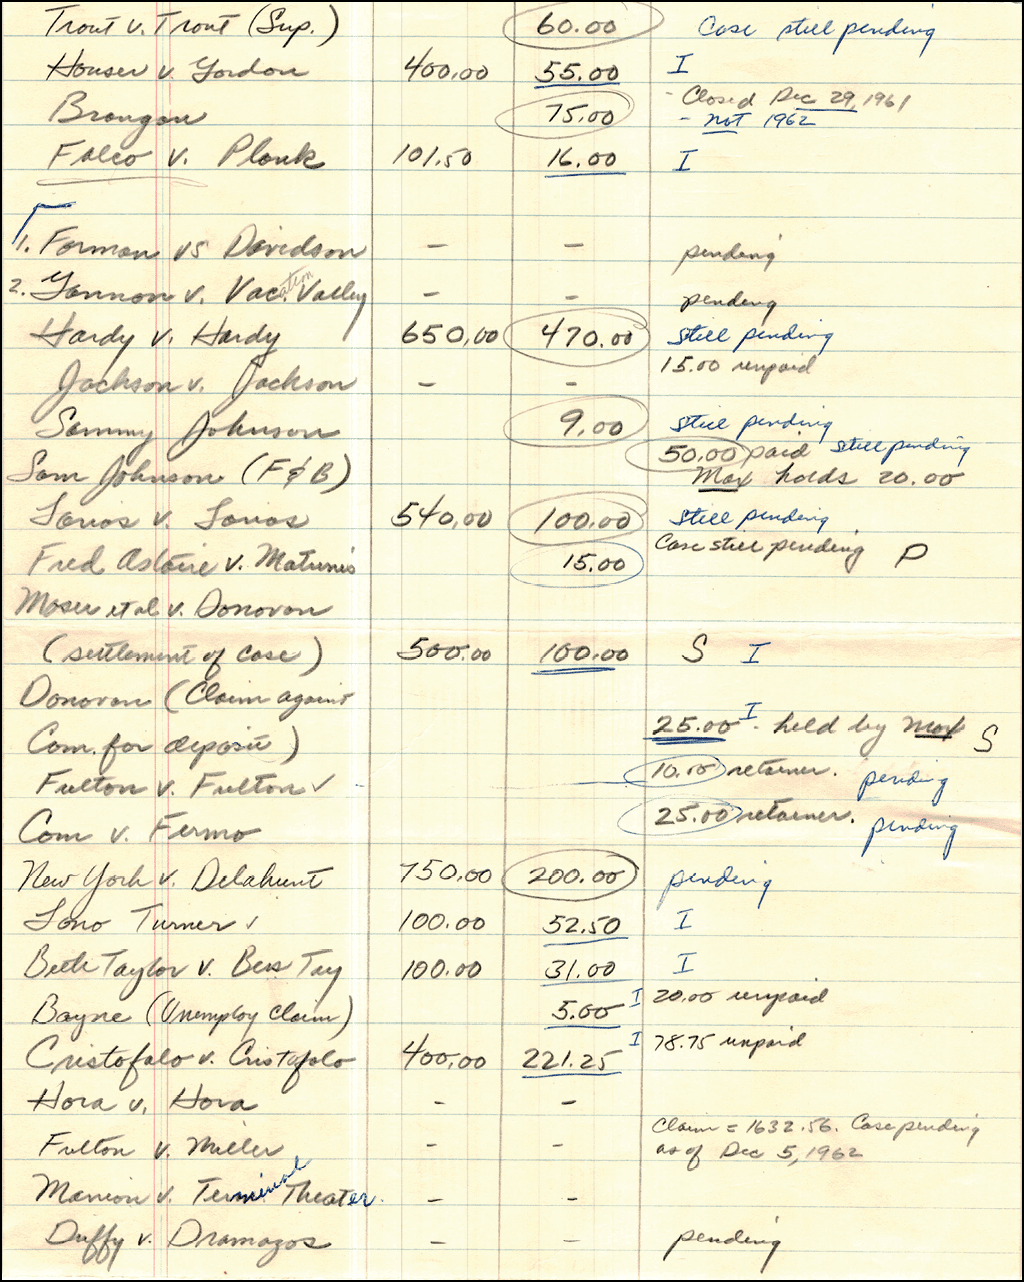 Trout v. Trout (Sup.) 60.00 Case still pending
Houser v. Gordon 400.00 55.00 I
Brongan 75.00 - Closed Dec 29, 1961
- not 1962
Falco v. Plonk 101.50 16.00 I
1. Forman vs Davidson — — pending
2. Gannon v. Vacation Valley — — pending
Hardy v. Hardy 650.00 470.00 still pending
15.00 unpaid
Jackson v. Jackson — —
Sammy Johnson 9.00 still pending
50.00 paid still pending
Sam Johnson (F & B) Max holds 20.00
v. 540.00 100.00 still pending
Fred Astaire v. 15.00 Case still pending P
Moser et al v. Donovan
(settlement of case) 500.00 100.00 S I
Donovan (Claim against
Com. for deposit) 25.00 I - held by Max S
Fulton v. Fulton ✓ 10.00 retainer. pending
Com v. Fermo 25.00 retainer. pending
New York v. Delahunt 750.00 200.00 pending
Turner ✓ 100.00 52.50 I
Beth Taylor v. Tay 100.00 31.00 I
Bayne (Unemploy Claim) 5.00 I 20.00 unpaid
Cristofalo v. Cristofalo 400.00 221.25 I 78.75 unpaid
Hora v. Hora — —
Fulton v. Miller — — Claim = 1632.56. Case pending
as of Dec 5, 1962
Manion v. Terminal Theater. — —
Duffy v. Dramazos — — pending